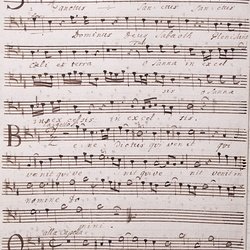 Sanctus Sanctus Sanctus
Dominus Deus Sabaoth Pleni sunt
Cæli et terra osanna in excel
sis osanna
in excelsis in excel sis.
Be ne Dictus qui venit qui
venit qui ve nit qui ve nit venit in
nomine Do
mini
Osanna